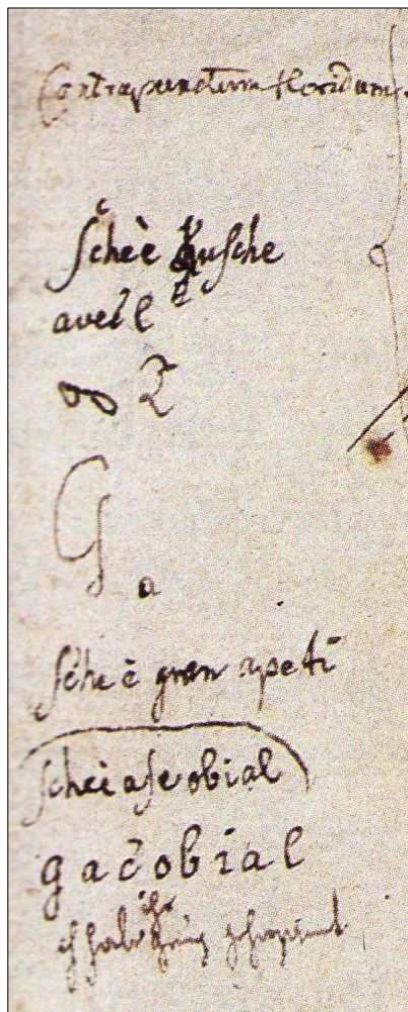 Contrapunctum floridum
schèè kusche
avecl
∞ 2
G a
schè è gran apeti
schèi ase obial
gacobial
ich habe ihr